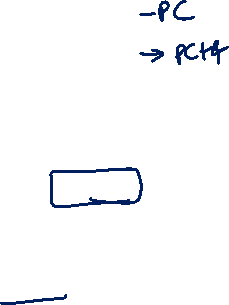 -PC
→ PCH4